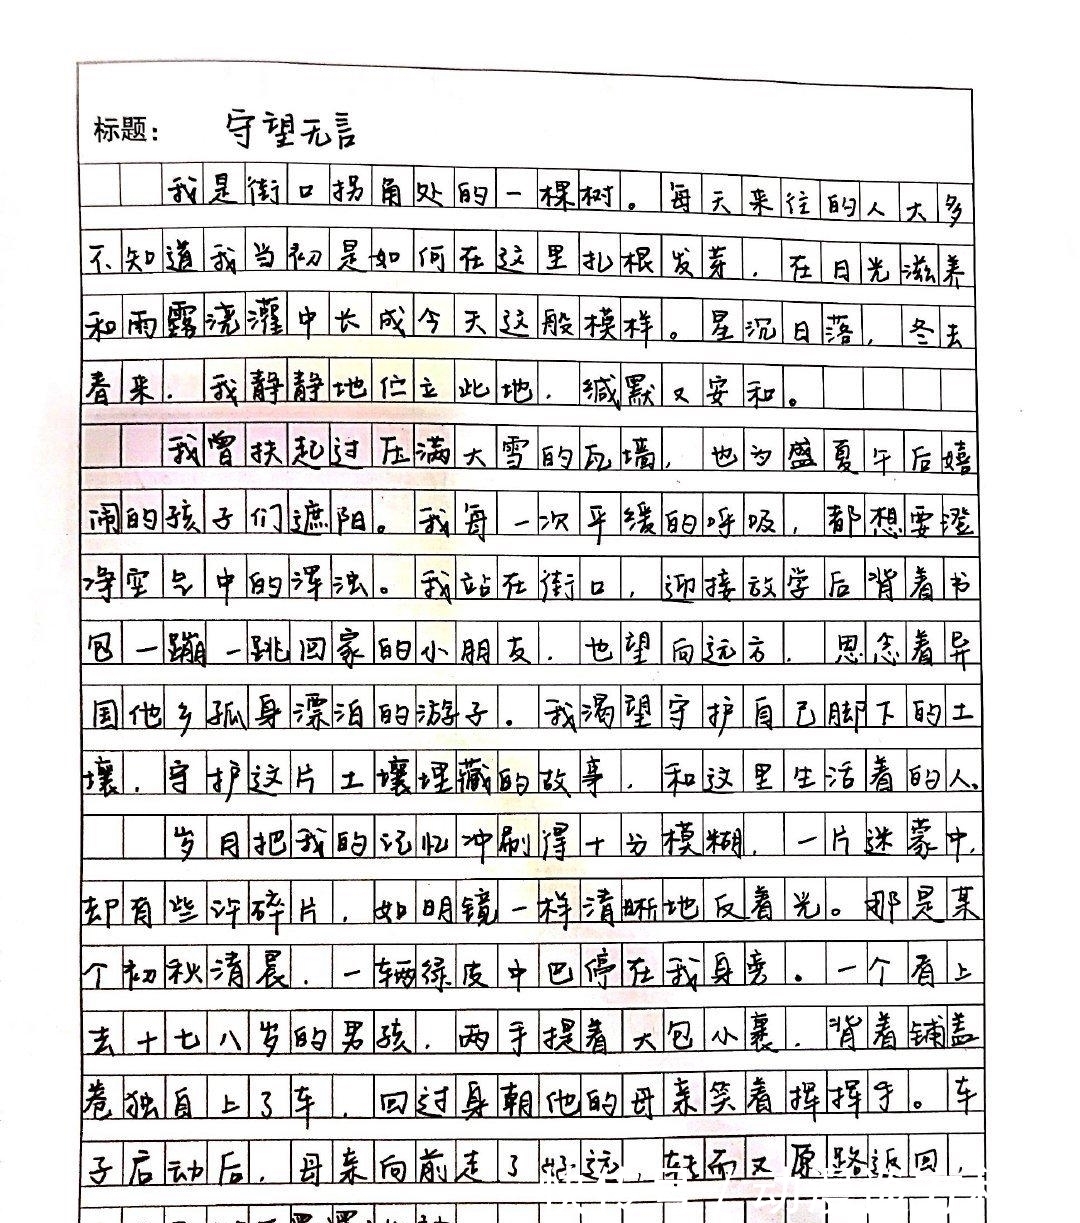 标题： 守望无言
我是街口拐角处的一棵树。每天来往的人大多
不知道我当初是如何在这里扎根发芽，在日光滋养
和雨露浇灌中长成今天这般模样。星沉日落，冬去
春来，我静静地伫立此地，缄默又安和。
我曾扶起过压满大雪的瓦墙，也为盛夏午后嬉
闹的孩子们遮阳。我每一次平缓的呼吸，都想要澄
净空气中的浑浊。我站在街口，迎接放学后背着书
包一蹦一跳回家的小朋友，也望向远方，思念着异
国他乡孤身漂泊的游子。我渴望守护自己脚下的土
壤，守护这片土壤埋藏的故事，和这里生活着的人。
岁月把我的记忆冲刷得十分模糊，一片迷蒙中，
却有些许碎片，如明镜一样清晰地反着光。那是某
个初秋清晨，一辆绿皮中巴停在我身旁。一个看上
去十七八岁的男孩，两手提着大包小裹，背着铺盖
卷独自上了车，回过身朝他的母亲笑着挥挥手。车
子启动后，母亲向前走了好远，转而又原路返回，